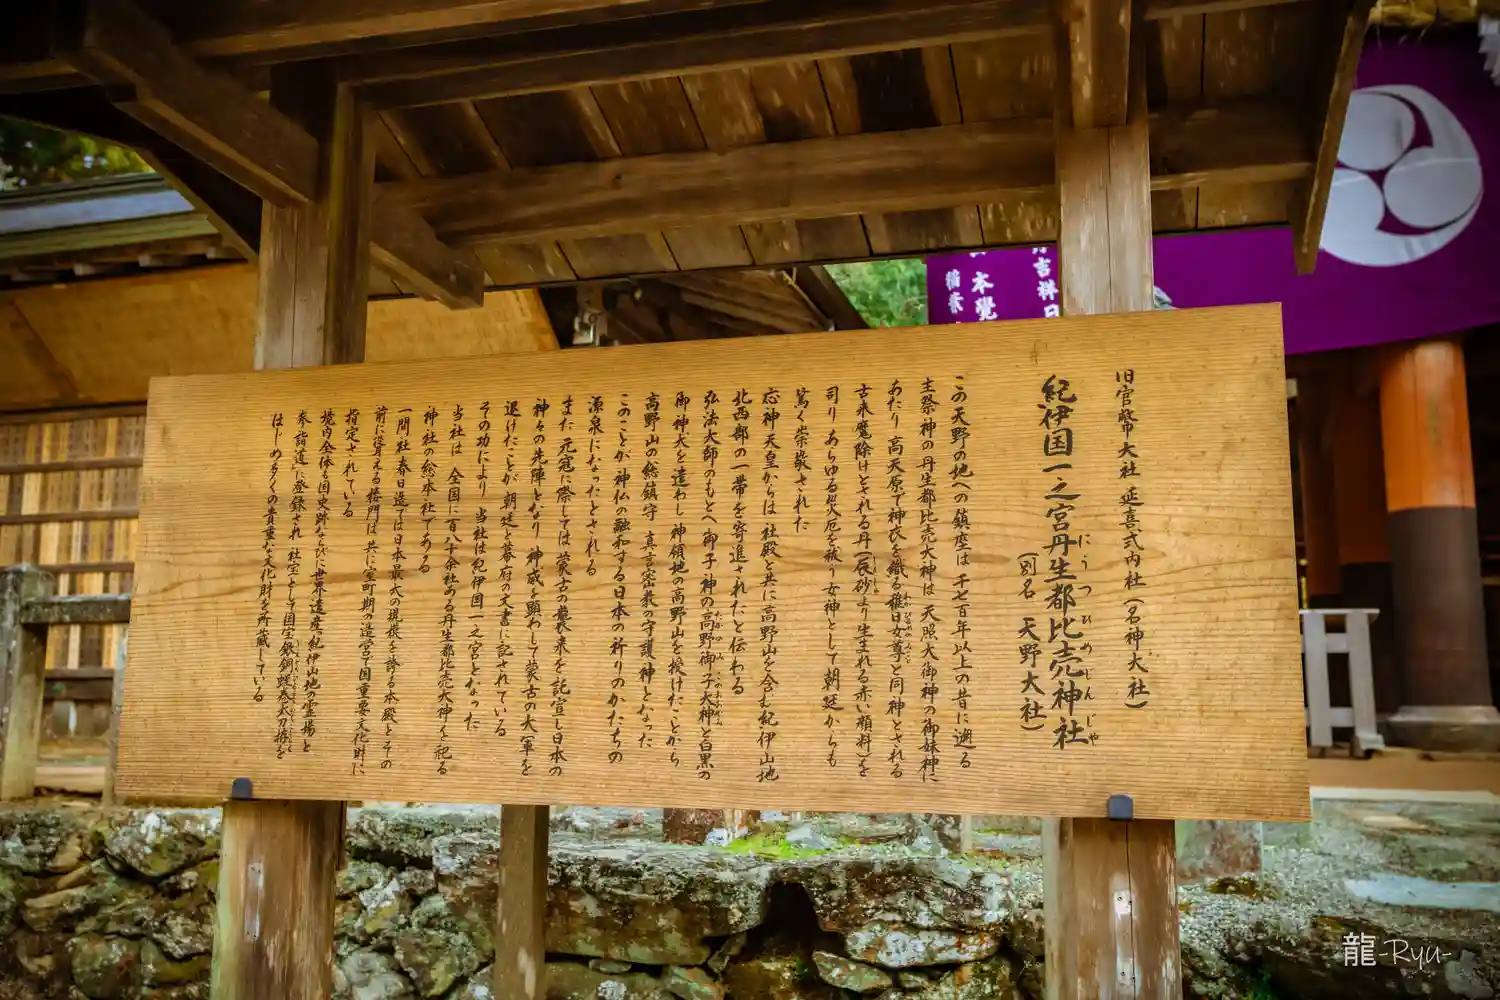 旧官幣大社 延喜式内社(名神大社)
紀伊国一之宮丹生都比売神社
にうつひめじんじゃ
(別名 天野大社)
この天野の地への鎮座は 千七百年以上の昔に遡る
主祭神の丹生都比売大神は 天照大御神の御妹神に
あたり 高天原で神衣を織る稚日女尊と同神とされる
古来魔除けとされる丹(辰砂より生まれる赤い顔料)を
司り あらゆる災厄を祓う女神として朝廷からも
篤く崇敬された
応神天皇からは 社殿と共に高野山を含む紀伊山地
北西部の一帯を寄進されたと伝わる
弘法大師のもとへ御子神の高野御子大神と白黒の
御神犬を遣わし 神領地の高野山を授けたことから
高野山の総鎮守 真言密教の守護神となった
このことが神仏の融和する日本の祈りのかたちの
源泉になったとされる
また 元寇に際しては 蒙古の襲来を託宣し日本の
神々の先陣となり 神威を顕わして蒙古の大軍を
退けたことが 朝廷と幕府の文書に記されている
その功により 当社は紀伊国一之宮となった
当社は 全国に百八十余社ある丹生都比売大神を祀る
神社の総本社である
一間社春日造では日本最大の規模を誇る本殿とその
前に聳える楼門は 共に室町期の造営で国重要文化財に
指定されている
境内全体も国史跡ならびに世界遺産「紀伊山地の霊場と
参詣道」に登録され 社宝として国宝銀銅蛭巻太刀拵を
はじめ多くの貴重な文化財を所蔵している
吉祥日
本覺
龍-Ryu-